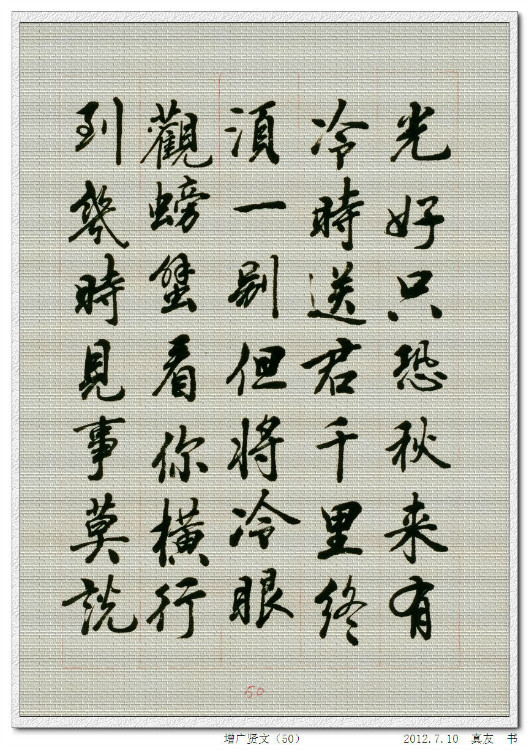 光好只恐秋来有
冷時送君千里终
須一别但将冷眼
觀螃蟹看你横行
到幾時見事莫説
50
增广贤文（50）
2012.7.10 真友 书